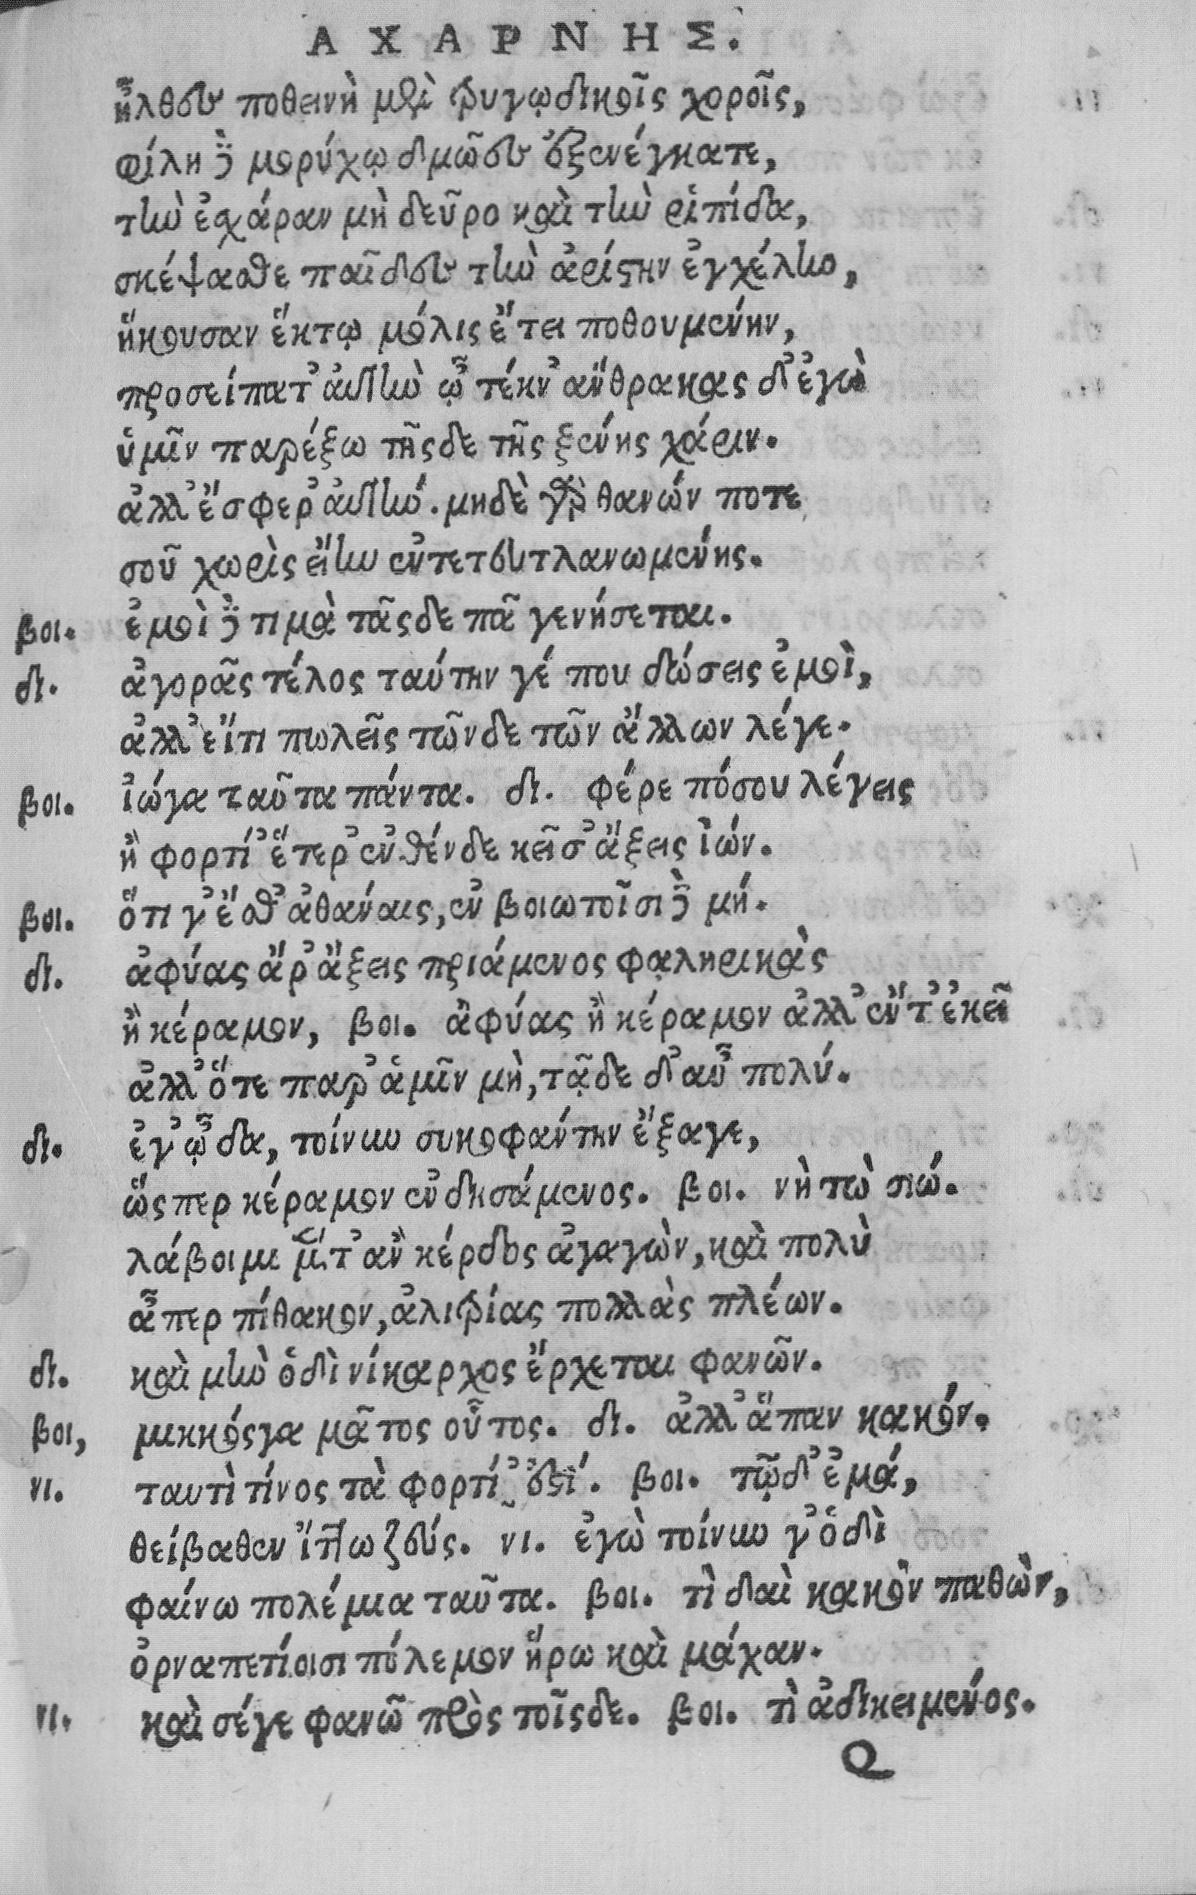 ΑΧΑΡΝΗΣ.
ἦλθες ποθεινὴ μὲν τρυγῳδικοῖς χοροῖς,
φίλη δὲ μορύχῳ δμῶες ἐξενέγκατε,
τὴν ἐσχάραν μὴ δεῦρο καὶ τὴν ῥιπίδα,
σκέψασθε παῖδες τὴν ἀρίστην ἐγχέλην,
ἥκουσαν ἕκτῳ μόλις ἔτει ποθουμένην,
προσείπατ' αὐτὴν ὦ τέκν' ἄνθρακας δ' ἐγὼ
ὑμῖν παρέξω τῆςδε τῆς ξένης χάριν.
ἀλλ' ἔσφερ' αὐτήν. μηδὲ γὰρ θανών ποτε
σοῦ χωρὶς εἴην ἐντετευτλανωμένης.
βοι. ἐμοὶ δὲ τιμὰ τᾶςδε πᾶ γενήσεται.
δι. ἀγορᾶς τέλος ταύτην γέ που δώσεις ἐμοὶ,
ἀλλ' εἴτι πωλεῖς τῶνδε τῶν ἄλλων λέγε.
βοι. ἰώγα ταῦτα πάντα. δι. φέρε πόσου λέγεις
ἢ φορτί' ἕτερ' ἐνθένδε κεῖσ' ἄξεις ἰών.
βοι. ὅτι γ' ἔσθ' ἀθάναις, ἐν βοιωτοῖσι δὲ μή.
δι. ἀφύας ἄρ' ἄξεις πριάμενος φαληρικὰς
ἢ κέραμον, βοι. ἀφύας ἢ κέραμον ἀλλ' ἔντ' ἐκεῖ
ἀλλ' ὅτε παρ' ἁμῖν μὴ, τᾷδε δ' αὖ πολύ.
δι. ἐγ' ᾦδα, τοίνυν συκοφάντην ἔξαγε,
ὥςπερ κέραμον ἐνδησάμενος. βοι. νὴ τὼ σιώ.
λάβοιμι μέντ' ἂν κέρδος ἀγαγὼν, καὶ πολὺ
ἇπερ πίθακον, ἀλιτρίας πολλὰς πλέων.
δι. καὶ μὴν ὁδὶ νίκαρχος ἔρχεται φανῶν.
βοι, μικκόςγα μᾶτος οὗτος. δι. ἀλλ' ἅπαν κακόν.
νι. ταυτὶ τίνος τὰ φορτί' ἐστί. βοι. τῷδ' ἐμά,
θείβαθεν ἴττω ζεύς. νι. ἐγὼ τοίνυν γ' ὁδὶ
φαίνω πολέμια ταῦτα. βοι. τὶ δαὶ κακὸν παθὼν,
ὀρναπετίοισι πόλεμον ἤρω καὶ μάχαν.
νι. καὶ σέγε φανῶ πρὸς τοῖςδε. βοι. τὶ ἀδικειμένος.
Q